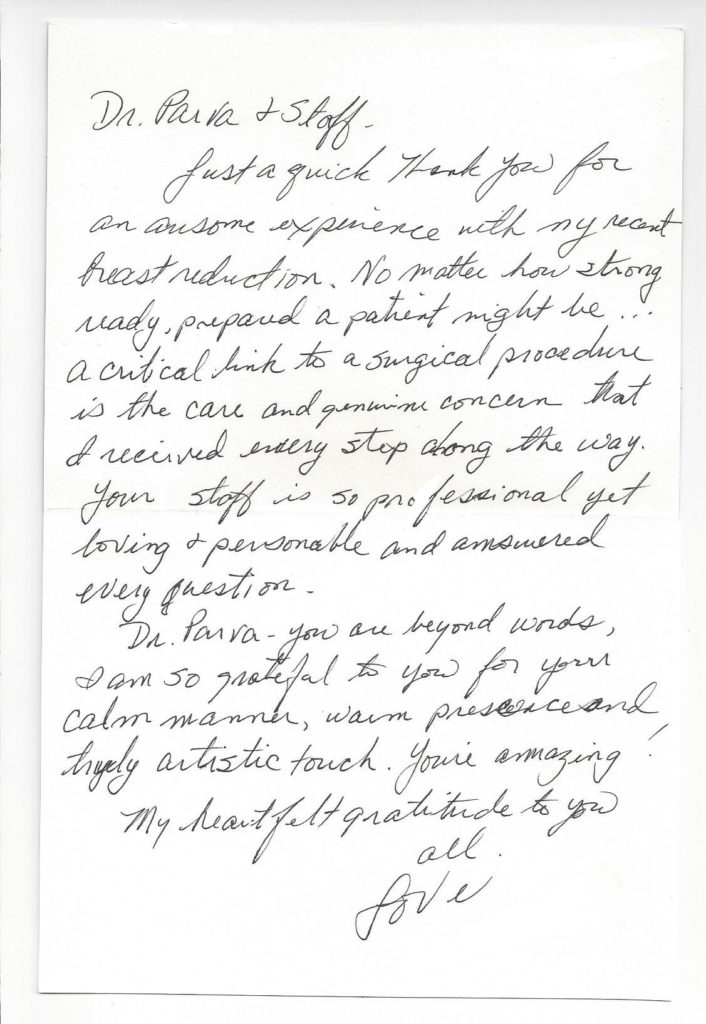 Dr. Parva & Staff.
Just a quick Thank You for
an awsome experience with my recent
breast reduction. No matter how strong
ready, prepared a patient might be ...
a critical link to a surgical procedure
is the care and genuine concern that
I received every step along the way.
Your staff is so professional yet
loving & personable and answered
every question.
Dr. Parva - you are beyond words,
I am so grateful to you for your
calm manner, warm presence and
truly artistic touch. You're amazing!
My heartfelt gratitude to you
all.
Love